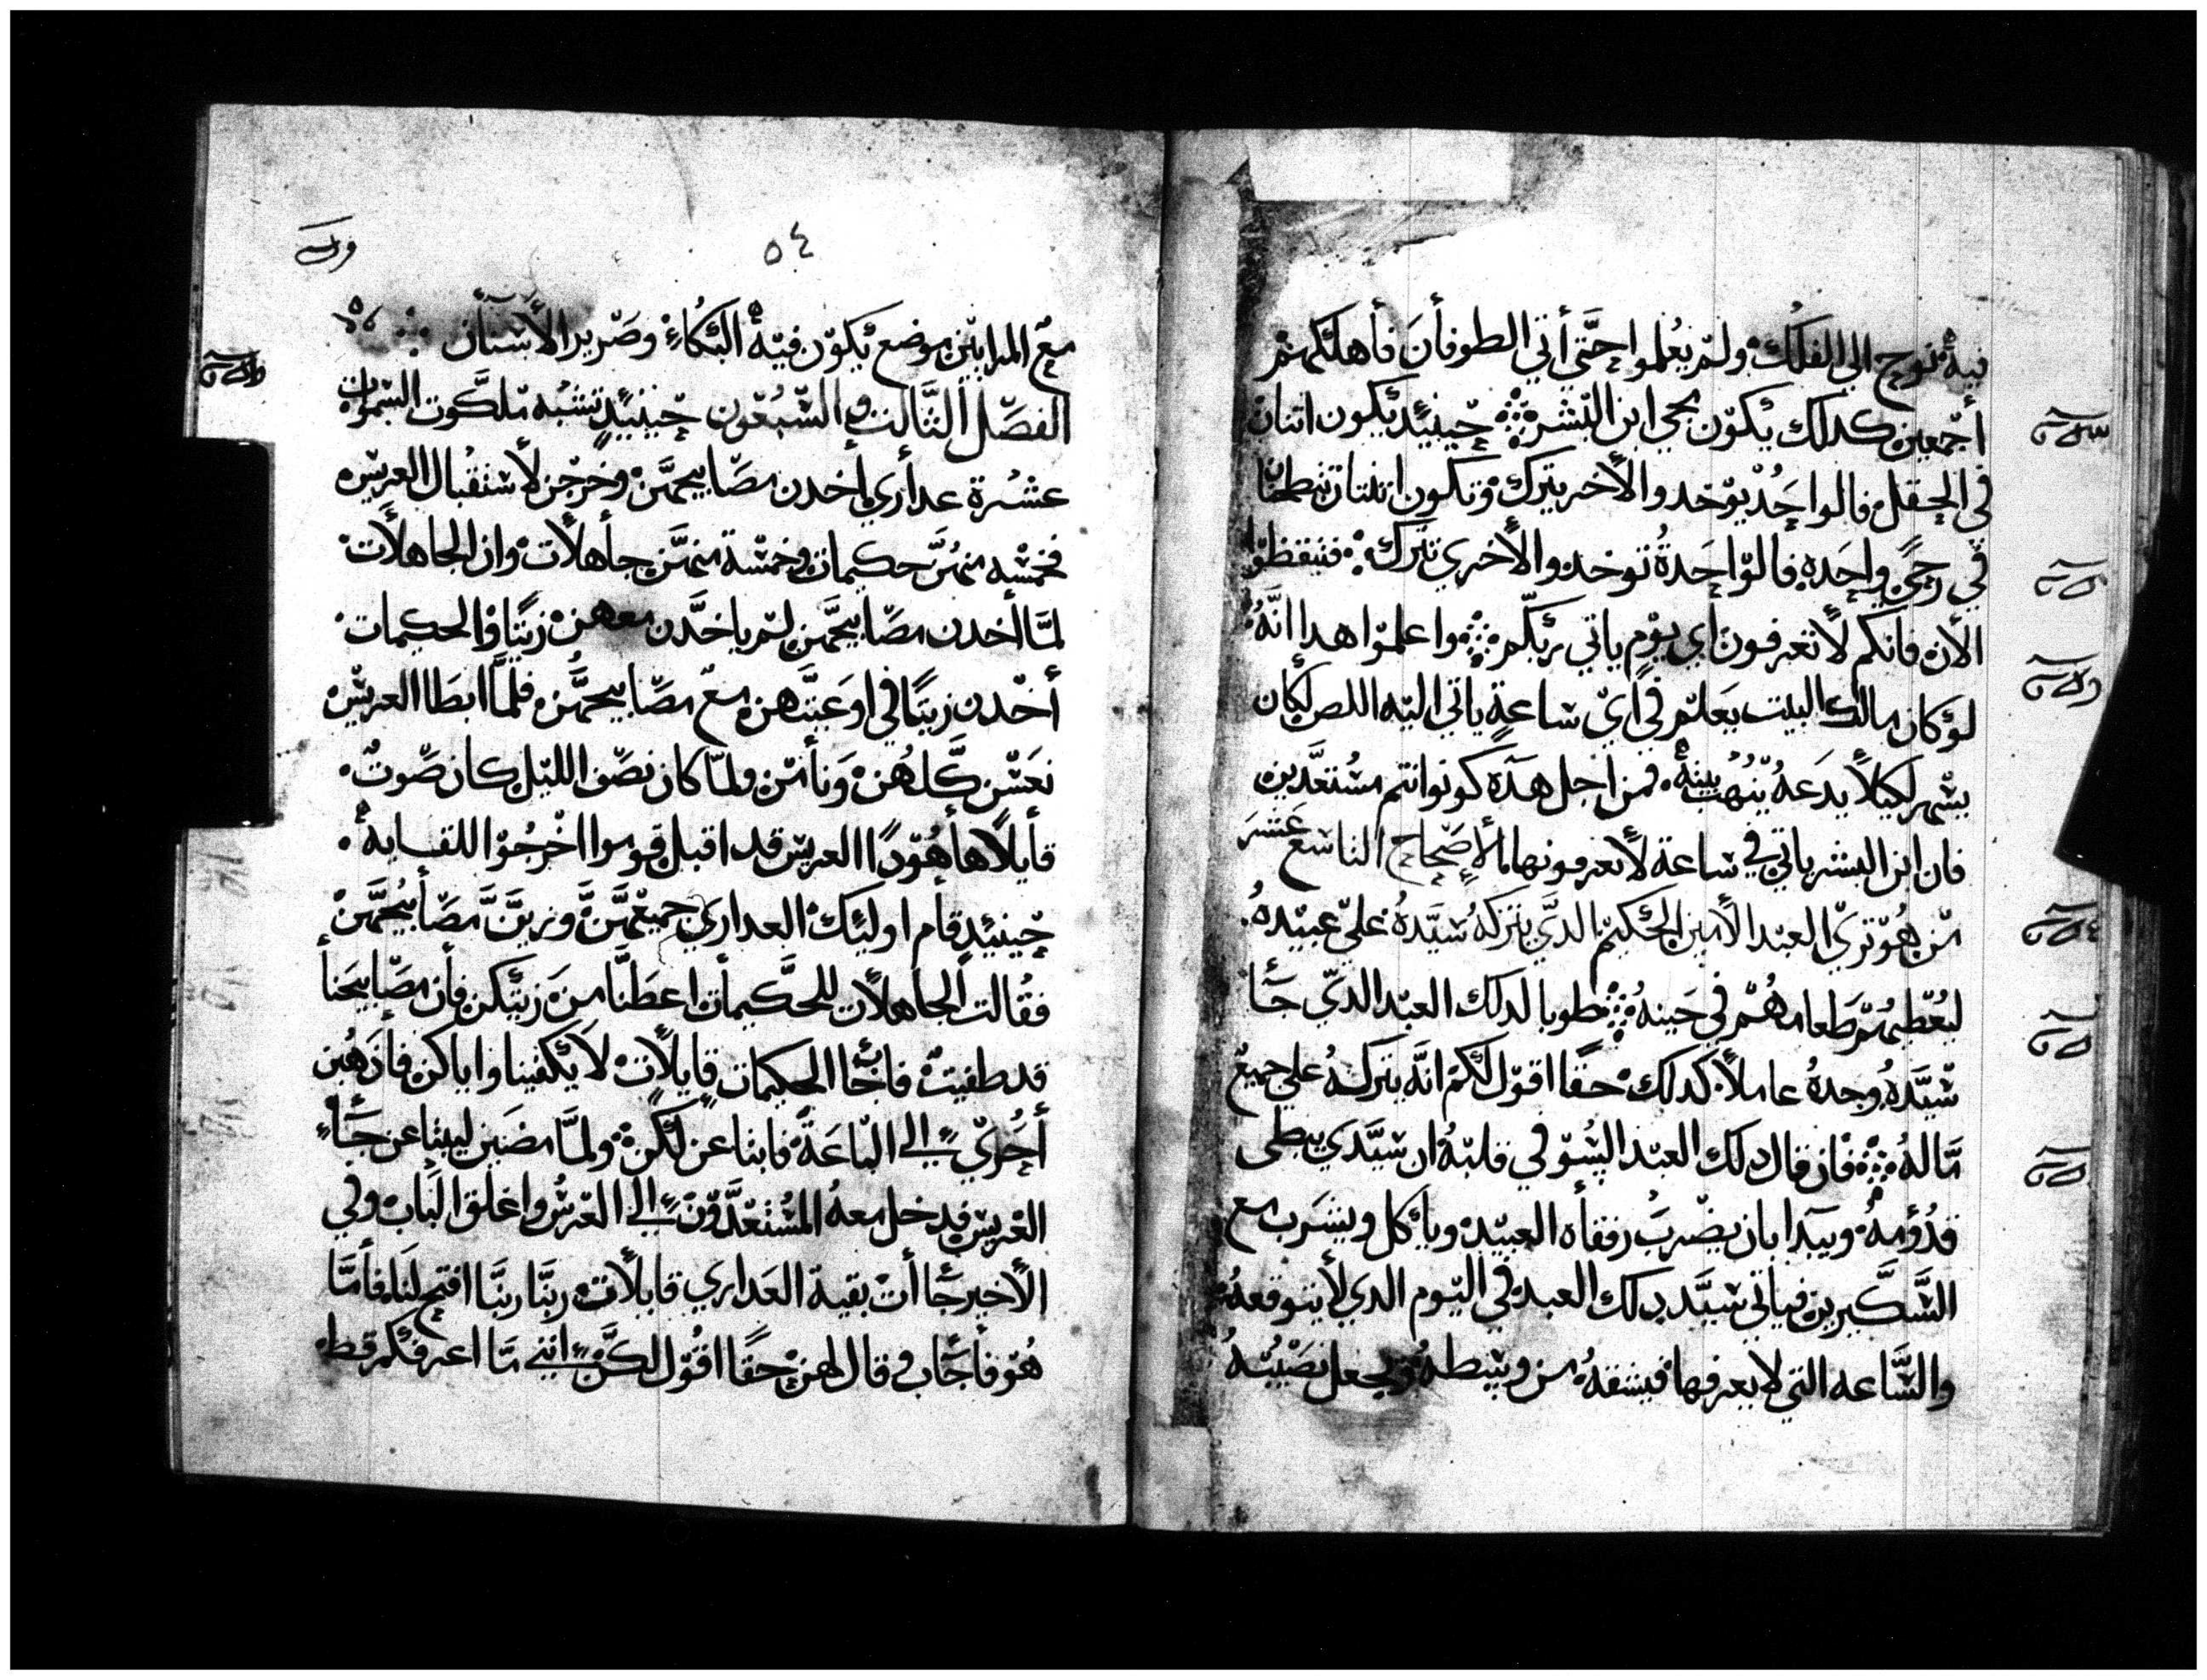 فيه نوح الي الفلك ولم يعلموا حتي أتي الطوفان فأهلكهم
أجمعين كدلك يكون مجي ابن البشر حينيد يكون اتنان
في الحقل فالواحد يوخد والأخر يترك وتكون اتنتان تطحنا
في رحي واحده فالواحدة توخد والأخري تترك فتيقظوا
الأن فأنكم لا تعرفون اي يوم ياتي ربكم واعلموا هدا انه
لو كان مالك البيت يعلم في اي ساعة ياتي اليه اللص لكان
يسهر لكيلا يدعه ينهب بيته فمن اجل هده كونوا انتم مستعدين
فان ابن البشر ياتي في ساعة لا تعرفونها الأصحاح التاسع عشر
من هو تري العبد الأمين الحكيم الدي يتركه سيده علي عبيده
ليعطيهم طعامهم في حينه طوبا لدلك العبد الدي جا
سيده وجده عاملا كدلك حقا اقول لكم انه يتركه علي جميع
ماله فان قال دلك العبد السو في قلبه ان سيدي يبطي
قدومه ويبدا بان يضرب رفقاه العبيد وياكل ويشرب مع
السكيرين فياتي سيد دلك العبد في اليوم الدي لا يتوقعه
والساعه التي لا يعرفها فيشقه من وسطه ويجعل نصيبه
٥٤
مع المرايين موضع يكون فيه البكاء وصرير الأسنان
الفصل التالت والسبعون حينيد تشبه ملكوت السموات
عشرة عداري اخدن مصابيحهن وخرجن لأستقبال العريس
فخمسه منهن حكيمات وخمسة منهن جاهلات وان الجاهلات
لما أخدن مصابيحهن لم ياخدن معهن زيتا والحكيمات
أخدن زيتا في اوعيتهن مع مصابيحهن فلما ابطا العريس
نعسن كلهن ونامن ولما كان نصف الليل كان صوت
قايلا ها هودا العريس قد اقبل قوموا اخرجوا للقايه
حينيد قام اوليك العداري جميعهن وزين مصابيحهن
فقالت الجاهلات للحكيمات اعطنا من زيتكن فان مصابيحنا
قد طفيت فاجا الحكيمات قايلات لا يكفينا واياكن فادهبن
أحري الي الباعة فابتاعن لكن ولما مضين ليبتاعن جاء
العريس فدخل معه المستعدون الي العرس واغلق الباب وفي
الأخير جاأت بقية العداري قايلات ربنا ربنا افتح لنا فأما
هو فأجاب وقال لهن حقا اقول لكن انني ما اعرفكم قط